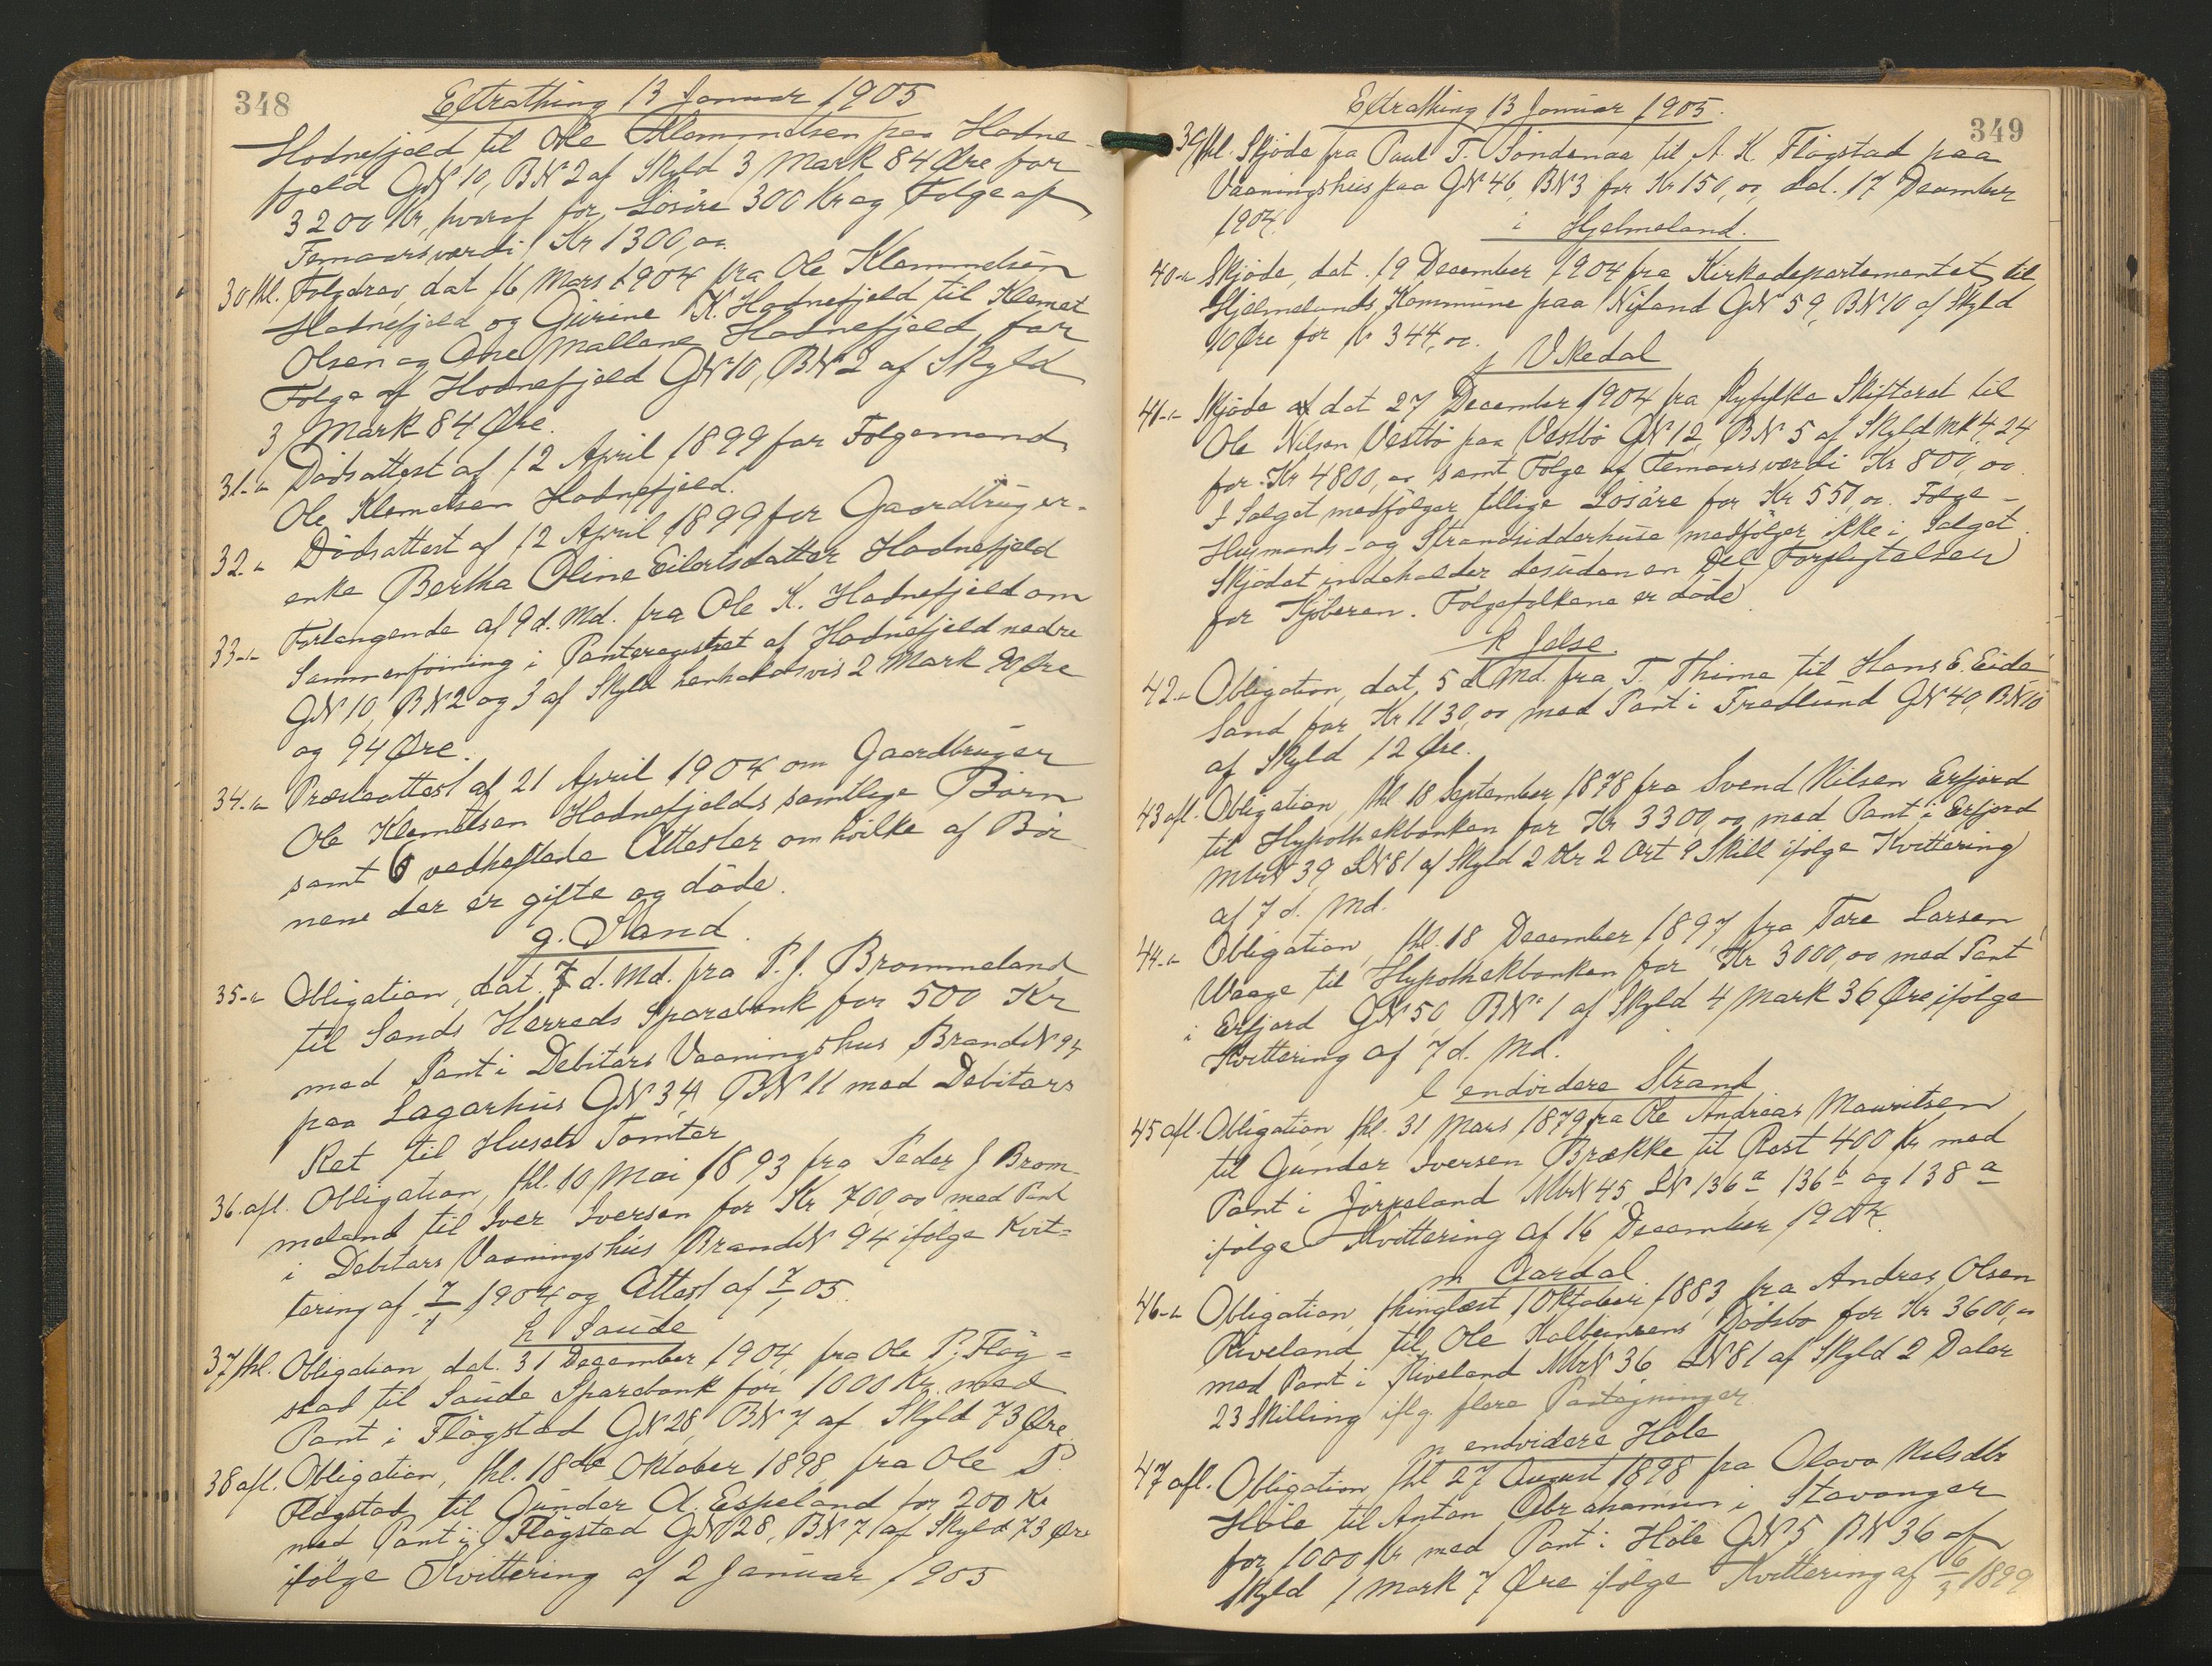 348
Extrathing 13 Januar 1905
Hodnefjeld til Ole Klemmelsen paa Hodne-
fjeld GN 10, BN 2 af Skyld 3 Mark 84 Øre for
3200 Kr, hvoraf for Løsøre 300 Kr og Folge af
Femaarsværdi Kr 1300,oo.
30 thl. Folgebrev, dat 16 Mars 1904 fra Ole Klemmelsen
Hodnefjeld og Gurine K. Hodnefjeld til Klemet
Olsen og Ane Mallene Hodnefjeld for
Folge af Hodnefjeld GN 10, BN 2 af Skyld
3 Mark 84 Øre.
31 -"- Dødsattest af 12 April 1899 for Folgemand
Ole Klemetsen Hodnefjeld.
32 -"- Dødsattest af 12 April 1899 for Gaardbruger-
enke Bertha Oline Eilertsdatter Hodnefjeld
33 -"- Forlangende af 9 d. Md. fra Ole K. Hodnefjeld om
Sammenføining i Panteregistret af Hodnefjeld nedre
GN 10, BN 2 og 3 af Skyld henholdsvis 2 Mark 90 Øre
og 94 Øre.
34 -"- Præsteattest af 21 April 1904 om Gaardbruger
Ole Klemetsen Hodnefjelds samtlige Børn
samt 6 vedheftede Attester om hvilke af Bør
nene der er gifte og døde.
g. Sand.
35 -"- Obligation, dat. 7 d. Md. fra P. J. Brommeland
til Sands Herreds Sparebank for 500 Kr
med Pant i Debitors Vaaningshus BrandN 94
paa Lagerhus GN 34, BN 11 med Debitors
Ret til Husets Tomter
36. afl. Obligation, thl. 10 Mai 1893 fra Peder J Brom-
meland til Iver Iversen for Kr 700,oo med Pant
i Debitors Vaaningshus BrandN 94 ifølge Kvit-
tering af 7/1 1904 og Attest af 7/1 05.
h Saude
37 thl. Obligation, dat. 31 December 1904, fra Ole P. Fløg-
stad til Saude Sparebank for 1000 Kr. med
Pant i Fløgstad GN 28, BN 7 af Skyld 73 Øre.
38 afl. Obligation, thl. 18de Oktober 1898 fra Ole P.
Fløgstad til Gunder A. Espeland for 200 Kr
med Pant i Fløgstad GN 28, BN 7 af Skyld 73 Øre
ifølge Kvittering af 2 Januar 1905
349
Extrathing 13 Januar 1905.
39 thl. Skjøde fra Paul T. Søndenaa til A. K. Fløgstad paa
Vaaningshus paa GN 46, BN 3 for Kr 150,oo, dat. 17 December
1904.
i Hjelmeland.
40 -"- Skjøde, dat. 19 December 1904 fra Kirkedepartementet til
Hjelmelands Kommune paa Nyland GN 59, BN 10 af Skyld
10 Øre for Kr 344,oo.
j Vikedal
41 -"- Skjøde af dat 27 December 1904 fra Ryfylke Skifteret til
Ole Nilsen Vestbø paa Vestbø GN 12, BN 5 af Skyld Mk 4.24
for Kr 4800,oo samt Folge af Femaarsværdi Kr 800,oo.
I Salget medfølger tillige Løsøre for Kr 550,oo. Folge-
Husmands- og Strandsidderhuse medfølger ikke i Salget.
Skjødet indeholder desuden en Del Forpligtelser
for Kjøberen. Folgefolkene er døde
k Jelse.
42 -"- Obligation, dat. 5 d. Md. fra T. Thime til Hans E. Eide
Sand for Kr 1130,oo med Pant i Fredlund GN 40, BN 10
af Skyld 12 Øre.
43 afl. Obligation, thl 18 September 1878 fra Svend Nilsen Erfjord
til Hypothekbanken for Kr 3300,oo med Pant i Erfjord
MtrN 39, LN 81 af Skyld 2 Dlr 2 Ort 9 Skill ifølge Kvittering
af 7 d. Md.
44 -"- Obligation, thl. 18 December 1897 fra Tore Larsen
Waage til Hypothekbanken for Kr 3000,oo med Pant
i Erfjord GN 50 BN 1 af Skyld 4 Mark 36 Øre ifølge
Kvittering af 7 d. Md.
l endvidere Strand
45 afl. Obligation, thl. 31 Mars 1879 fra Ole Andreas Mauritsen
til Gunder Iversen Brække til Rest 400 Kr med
Pant i Jørpeland MtrN 45, LN 136 a, 136 b og 138 a
ifølge Kvittering af 16 December 1904.
m Aardal
46 -"- Obligation, thinglæst 1 Oktober 1883 fra Andreas Olsen
Riveland til Ole Kolbeinsens Dødsbo for Kr 3600,oo
med Pant i Riveland MtrN 36 LN 81 af Skyld 2 Daler
23 Skilling iflg. flere Paategninger
n endvidere Høle
47 afl. Obligation, thl 27 August 1898 fra Olava Nilsdtr
Høle til Anton Abrahamsen i Stavanger
for 1000 Kr med Pant i Høle GN 5, BN 36 af
Skyld 1 Mark 7 Øre ifølge Kvittering af 16/3 1899